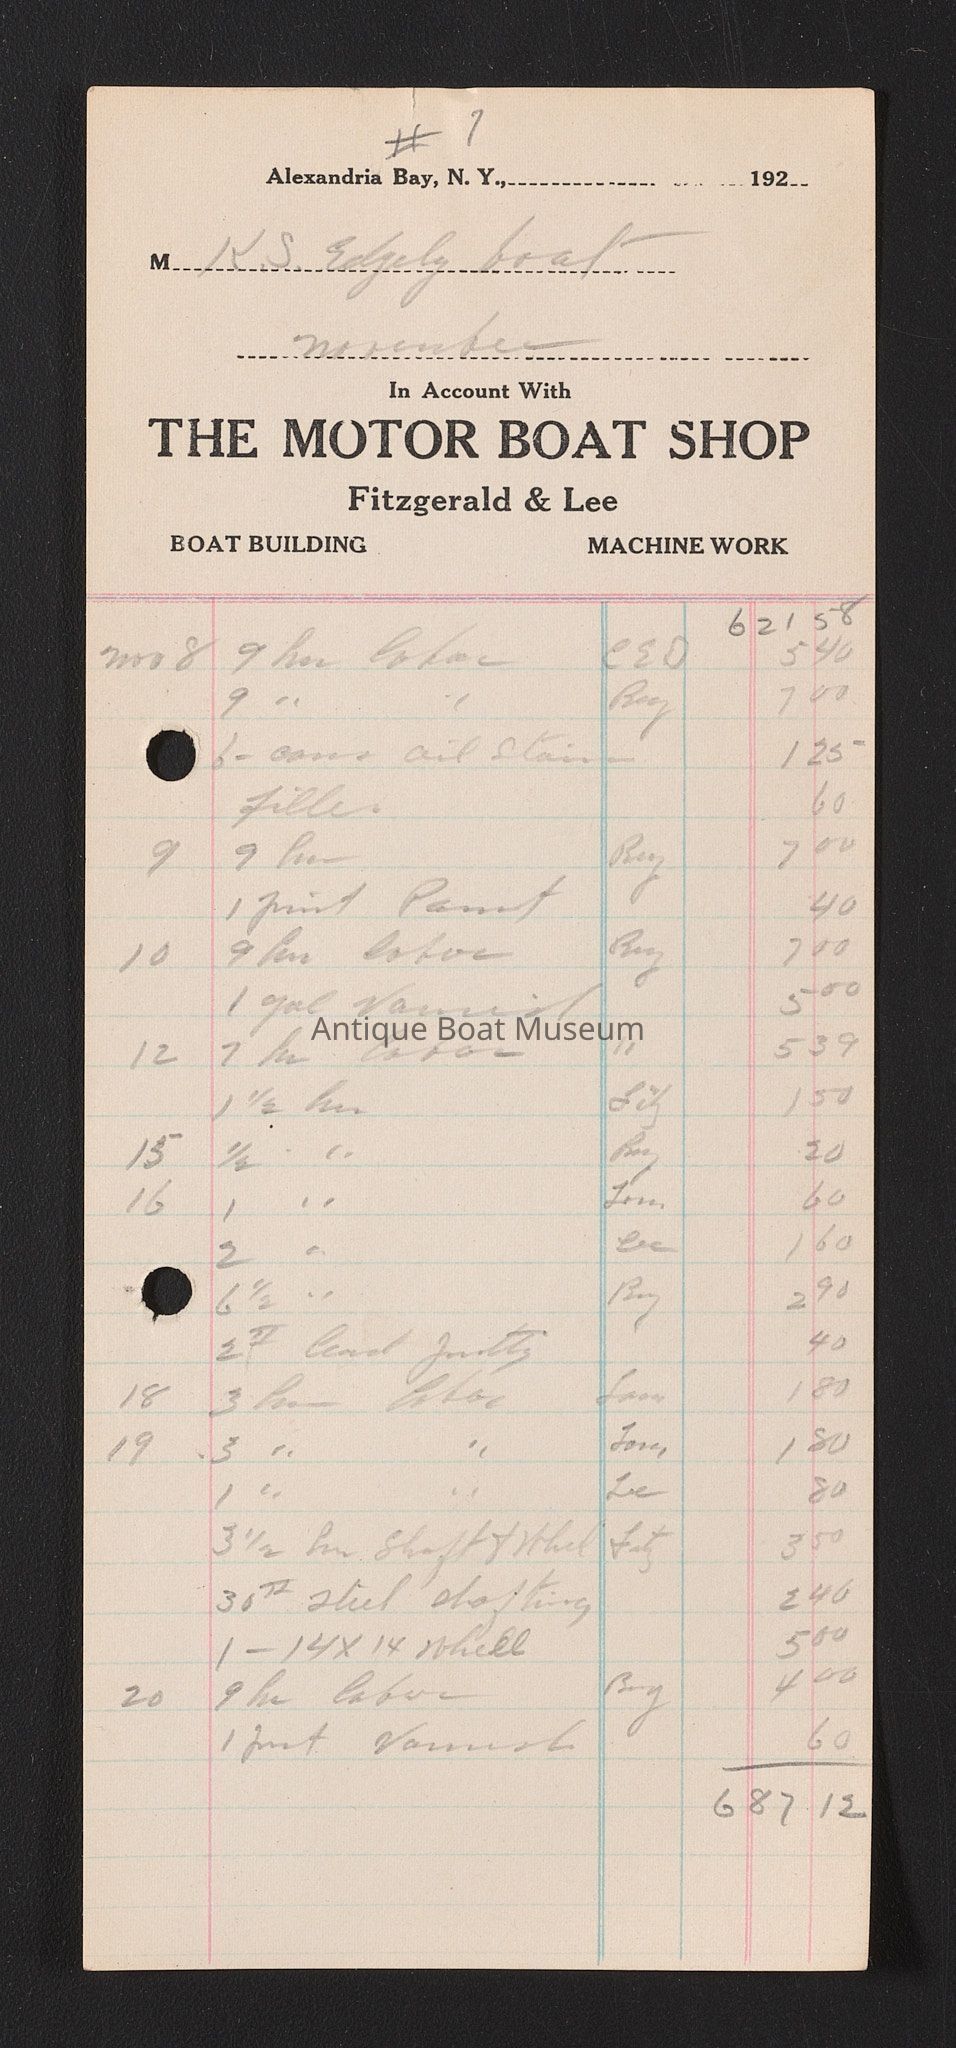 # 7
Alexandria Bay, N. Y., 192
M K.S. Edgely boat
november
In Account With
THE MOTOR BOAT SHOP
Fitzgerald & Lee
BOAT BUILDING MACHINE WORK
621 58
nov 8 9 hr labor CED 5 40
9 " " 7 00
6- cans oil Stain 1 25
filler 60
9 9 hr 7 00
1 pint Paint 40
10 9 hr labor 7 00
1 gal Varnish 5 00
Antique Boat Museum
12 7 hr labor " 5 39
1 1/2 hr Fitz 1 50
15 1/2 " 20
16 1 " Tom 60
2 " Lee 1 60
6 1/2 " 2 90
2# lead putty 40
18 3 hr labor Tom 1 80
19 3 " " Tom 1 80
1 " " Lee 80
3 1/2 hr Shaft & Whel Fitz 3 50
30# steel shafting 2 40
1 - 14 X 14 Whell 5 00
20 9 hr labor 4 00
1 pint Varnish 60
687 12